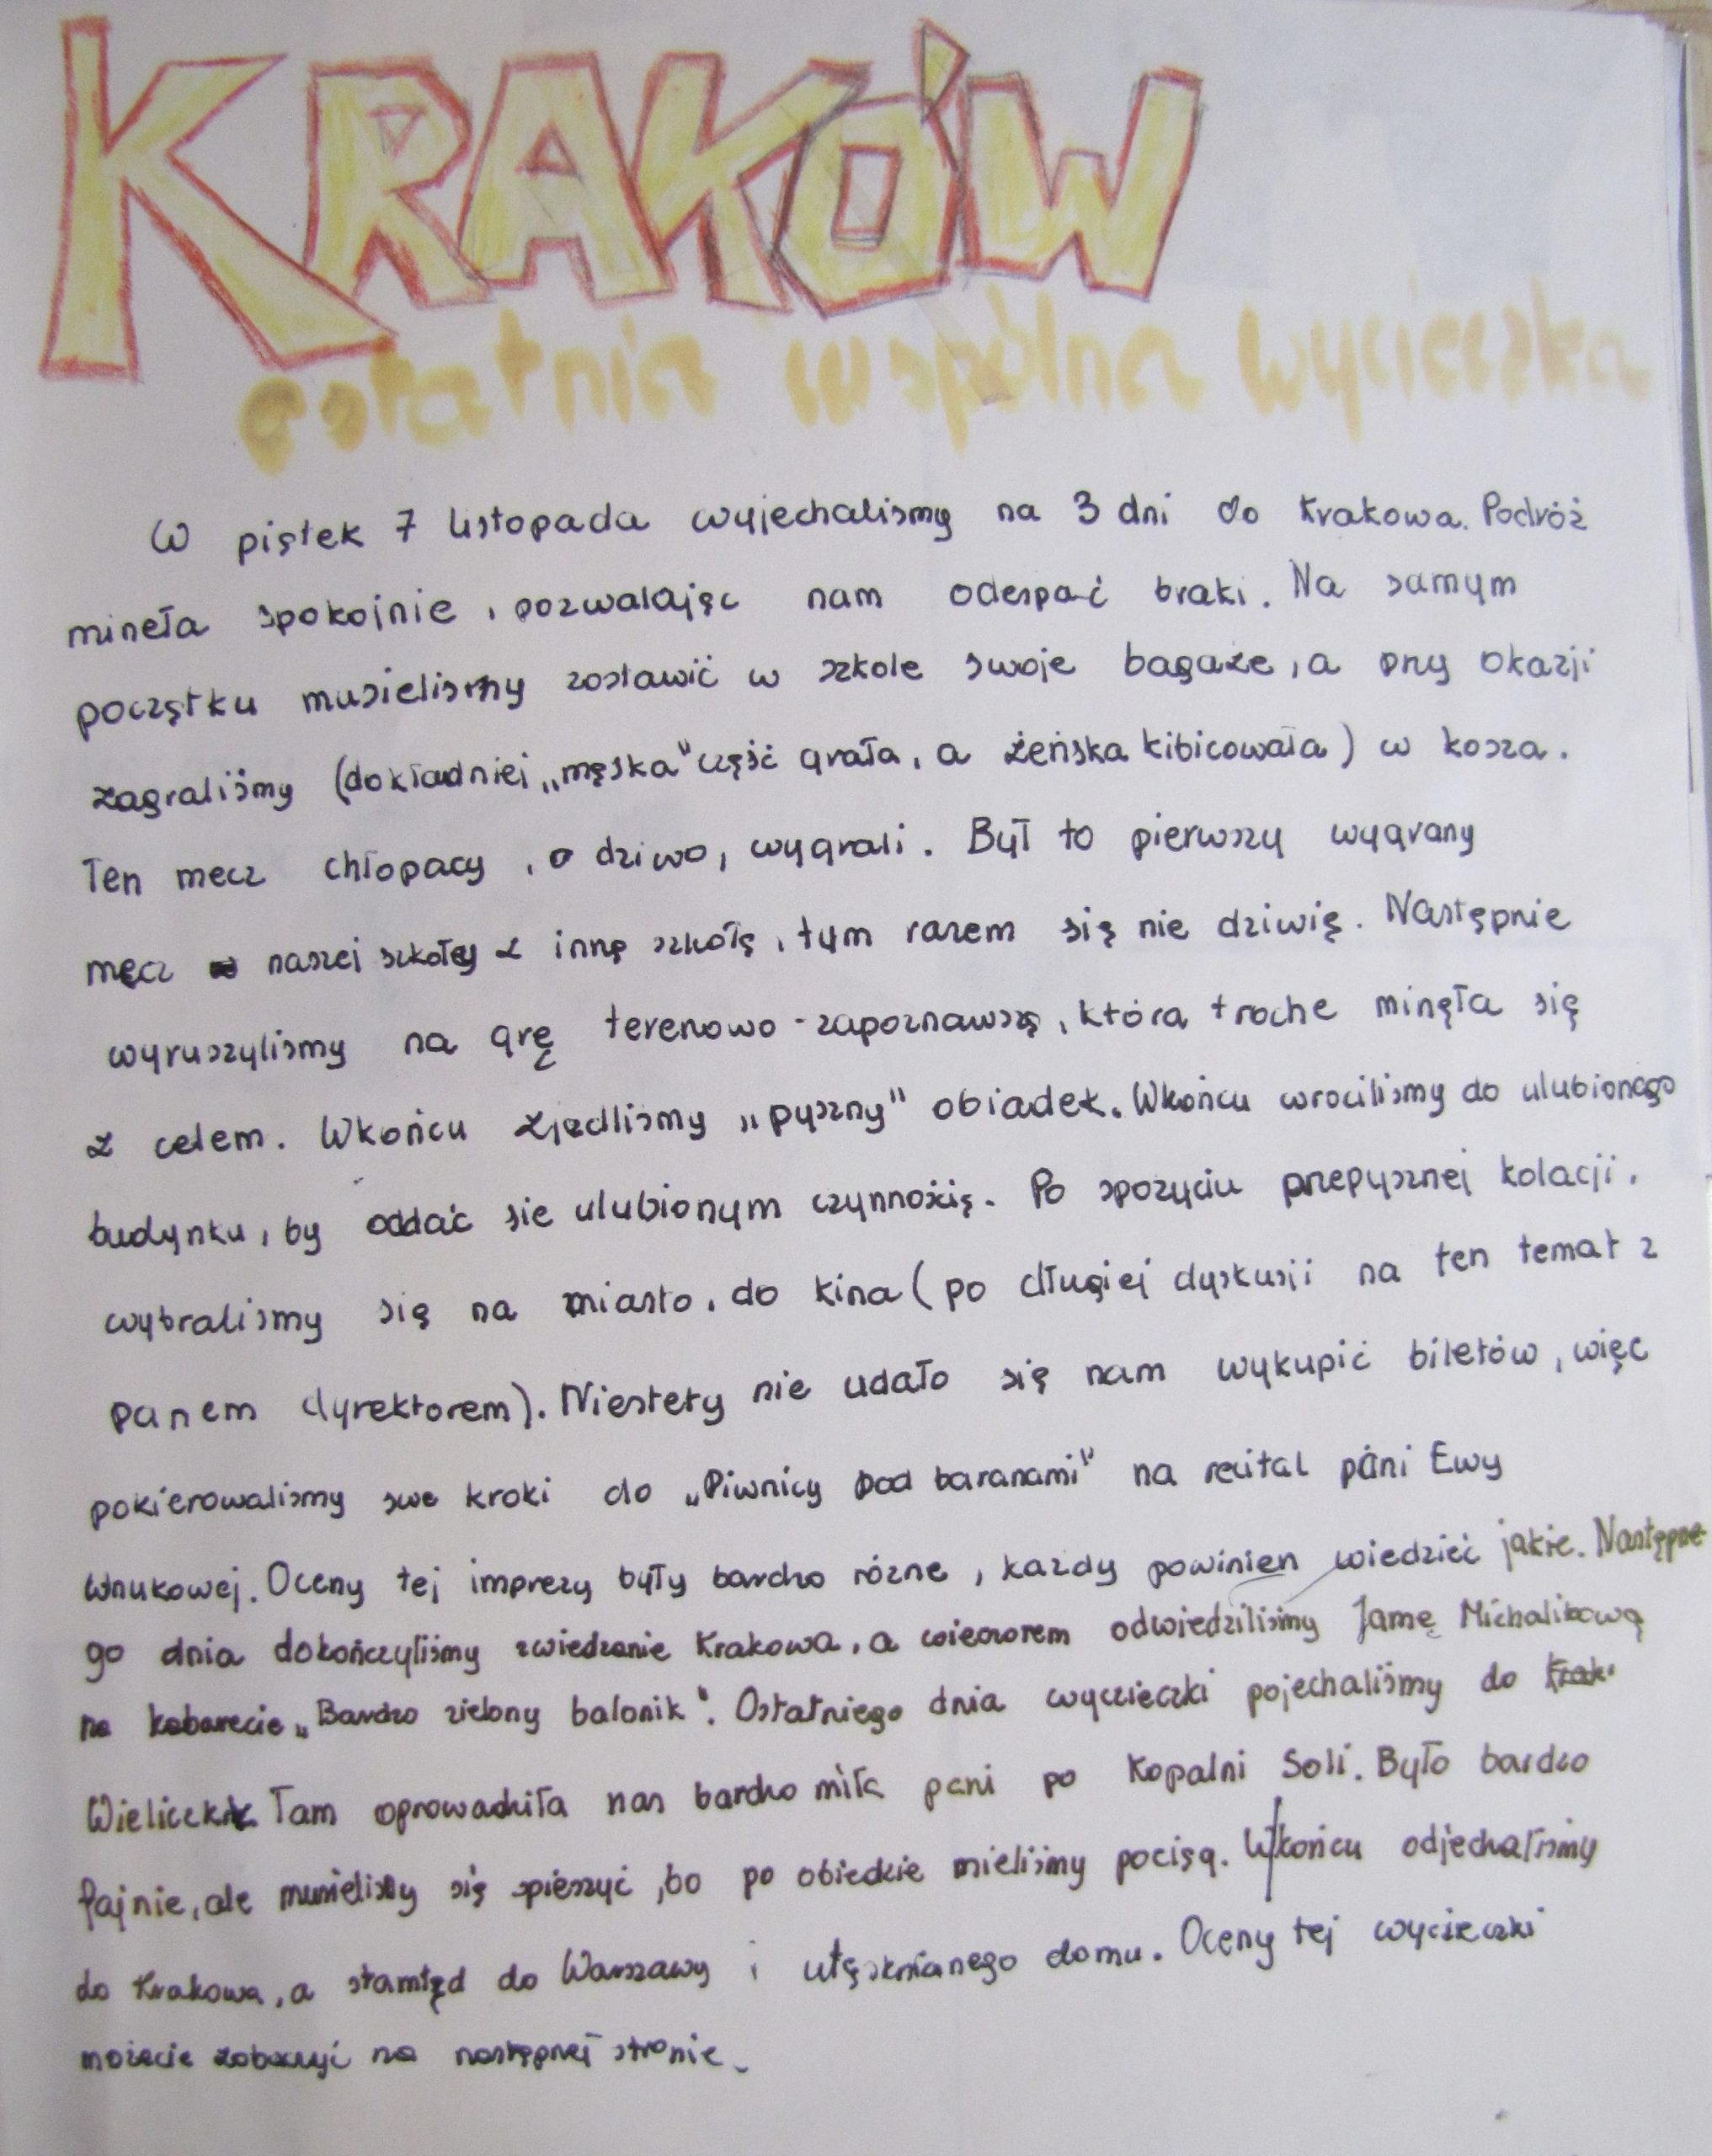 KRAKÓW
ostatnia wspólna wycieczka
W piątek 7 listopada wyjechalismy na 3 dni do Krakowa. Podróż
mineła spokojnie, pozwalając nam odespać braki. Na samym
początku musielismy zostawić w szkole swoje bagaże, a przy okazji
zagraliśmy (dokładniej „męska" część grała, a żeńska kibicowała) w kosza.
Ten mecz chłopacy, o dziwo, wygrali. Był to pierwszy wygrany
mecz naszej szkoły z inną szkołą, tym razem się nie dziwię. Następnie
wyruszylismy na grę terenowo-zapoznawszą, która troche minęła się
z celem. Wkońcu zjedlismy „pyszny" obiadek. Wkońcu wrocilismy do ulubionego
budynku, by oddać sie ulubionym czynnością. Po spozyciu przepysznej kolacji,
wybralismy się na miasto, do kina (po długiej dyskusji na ten temat z
panem dyrektorem). Niestety nie udało się nam wykupić biletów, więc
pokierowalismy swe kroki do „Piwnicy pod baranami" na recital pani Ewy
Wnukowej. Oceny tej imprezy były bardzo rózne, kazdy powinien wiedzieć jakie. Następne-
go dnia dokończyliśmy zwiedzanie Krakowa, a wieczorem odwiedziliśmy Jamę Michalikową
na kabarecie „Bardzo zielony balonik". Ostatniego dnia wycieczki pojechaliśmy do Krak
Wieliczki. Tam oprowadziła nas bardzo miła pani po Kopalni Soli. Było bardzo
fajnie, ale musieliśmy się spieszyć, bo po obiedzie mieliśmy pociąg. Wkońcu odjechaliśmy
do Krakowa, a stamtąd do Warszawy i utęsknianego domu. Oceny tej wycieczki
możecie zobaczyć na następnej stronie.